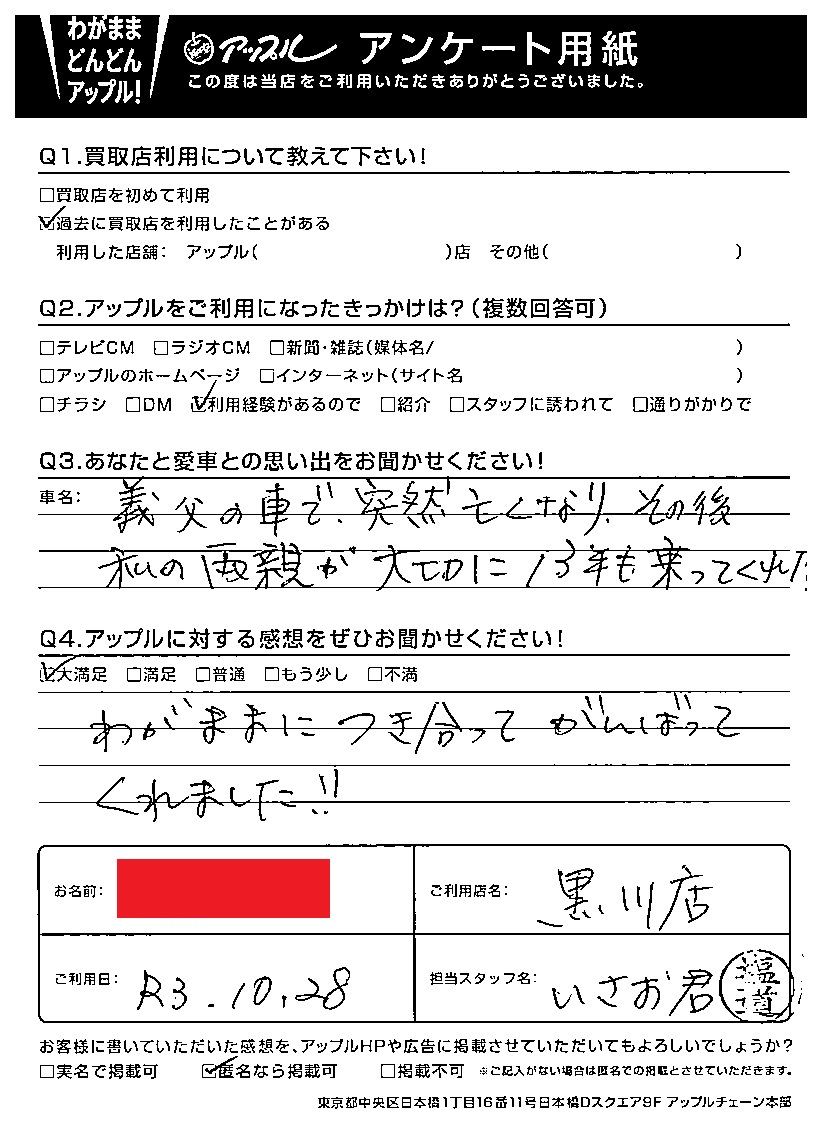 わがまま
どんどん
アップル!
アップル アンケート用紙
この度は当店をご利用いただきありがとうございました。
Q1.買取店利用について教えて下さい!
□買取店を初めて利用
☑過去に買取店を利用したことがある
利用した店舗: アップル( )店 その他( )
Q2.アップルをご利用になったきっかけは?(複数回答可)
□テレビCM □ラジオCM □新聞・雑誌(媒体名/ )
□アップルのホームページ □インターネット(サイト名 )
□チラシ □DM ☑利用経験があるので □紹介 □スタッフに誘われて □通りがかりで
Q3.あなたと愛車との思い出をお聞かせください!
車名: 義父の車で、突然亡くなり、その後
私の両親が大切に13年も乗ってくれた
Q4.アップルに対する感想をぜひお聞かせください!
☑大満足 □満足 □普通 □もう少し □不満
わがままにつき合ってがんばって
くれました!!
お名前:
ご利用店名: 黒川店
ご利用日: R3.10.28
担当スタッフ名: いさお君
お客様に書いていただいた感想を、アップルHPや広告に掲載させていただいてもよろしいでしょうか?
□実名で掲載可 ☑匿名なら掲載可 □掲載不可 ※ご記入がない場合は匿名での掲載とさせていただきます。
東京都中央区日本橋1丁目16番11号日本橋Dスクエア9F アップルチェーン本部